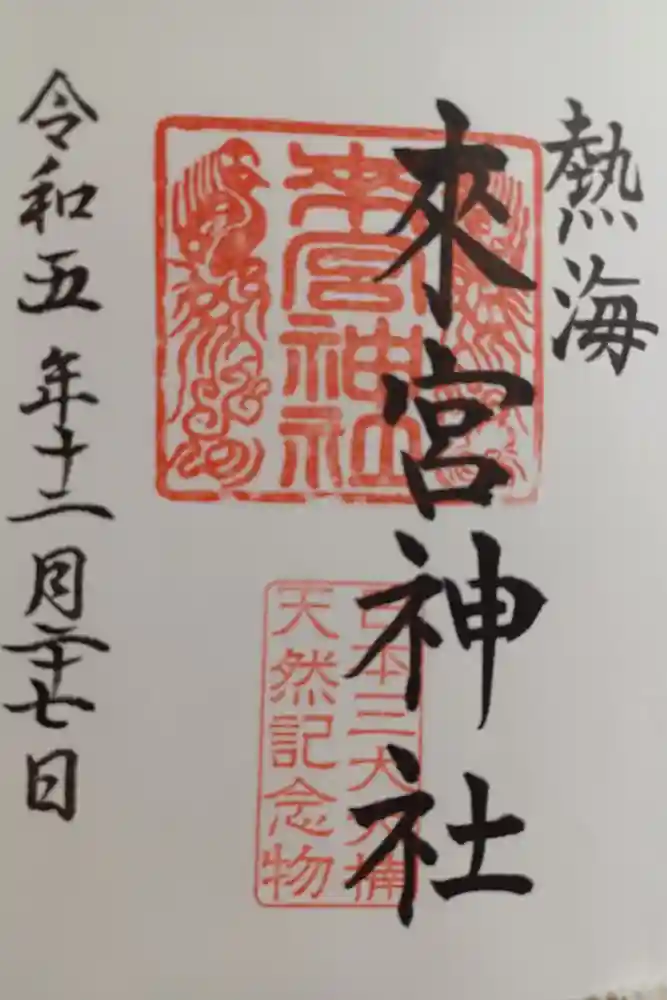 熱海
來宮神社
來宮神社
日本三大大楠
天然記念物
令和五年十二月二十七日